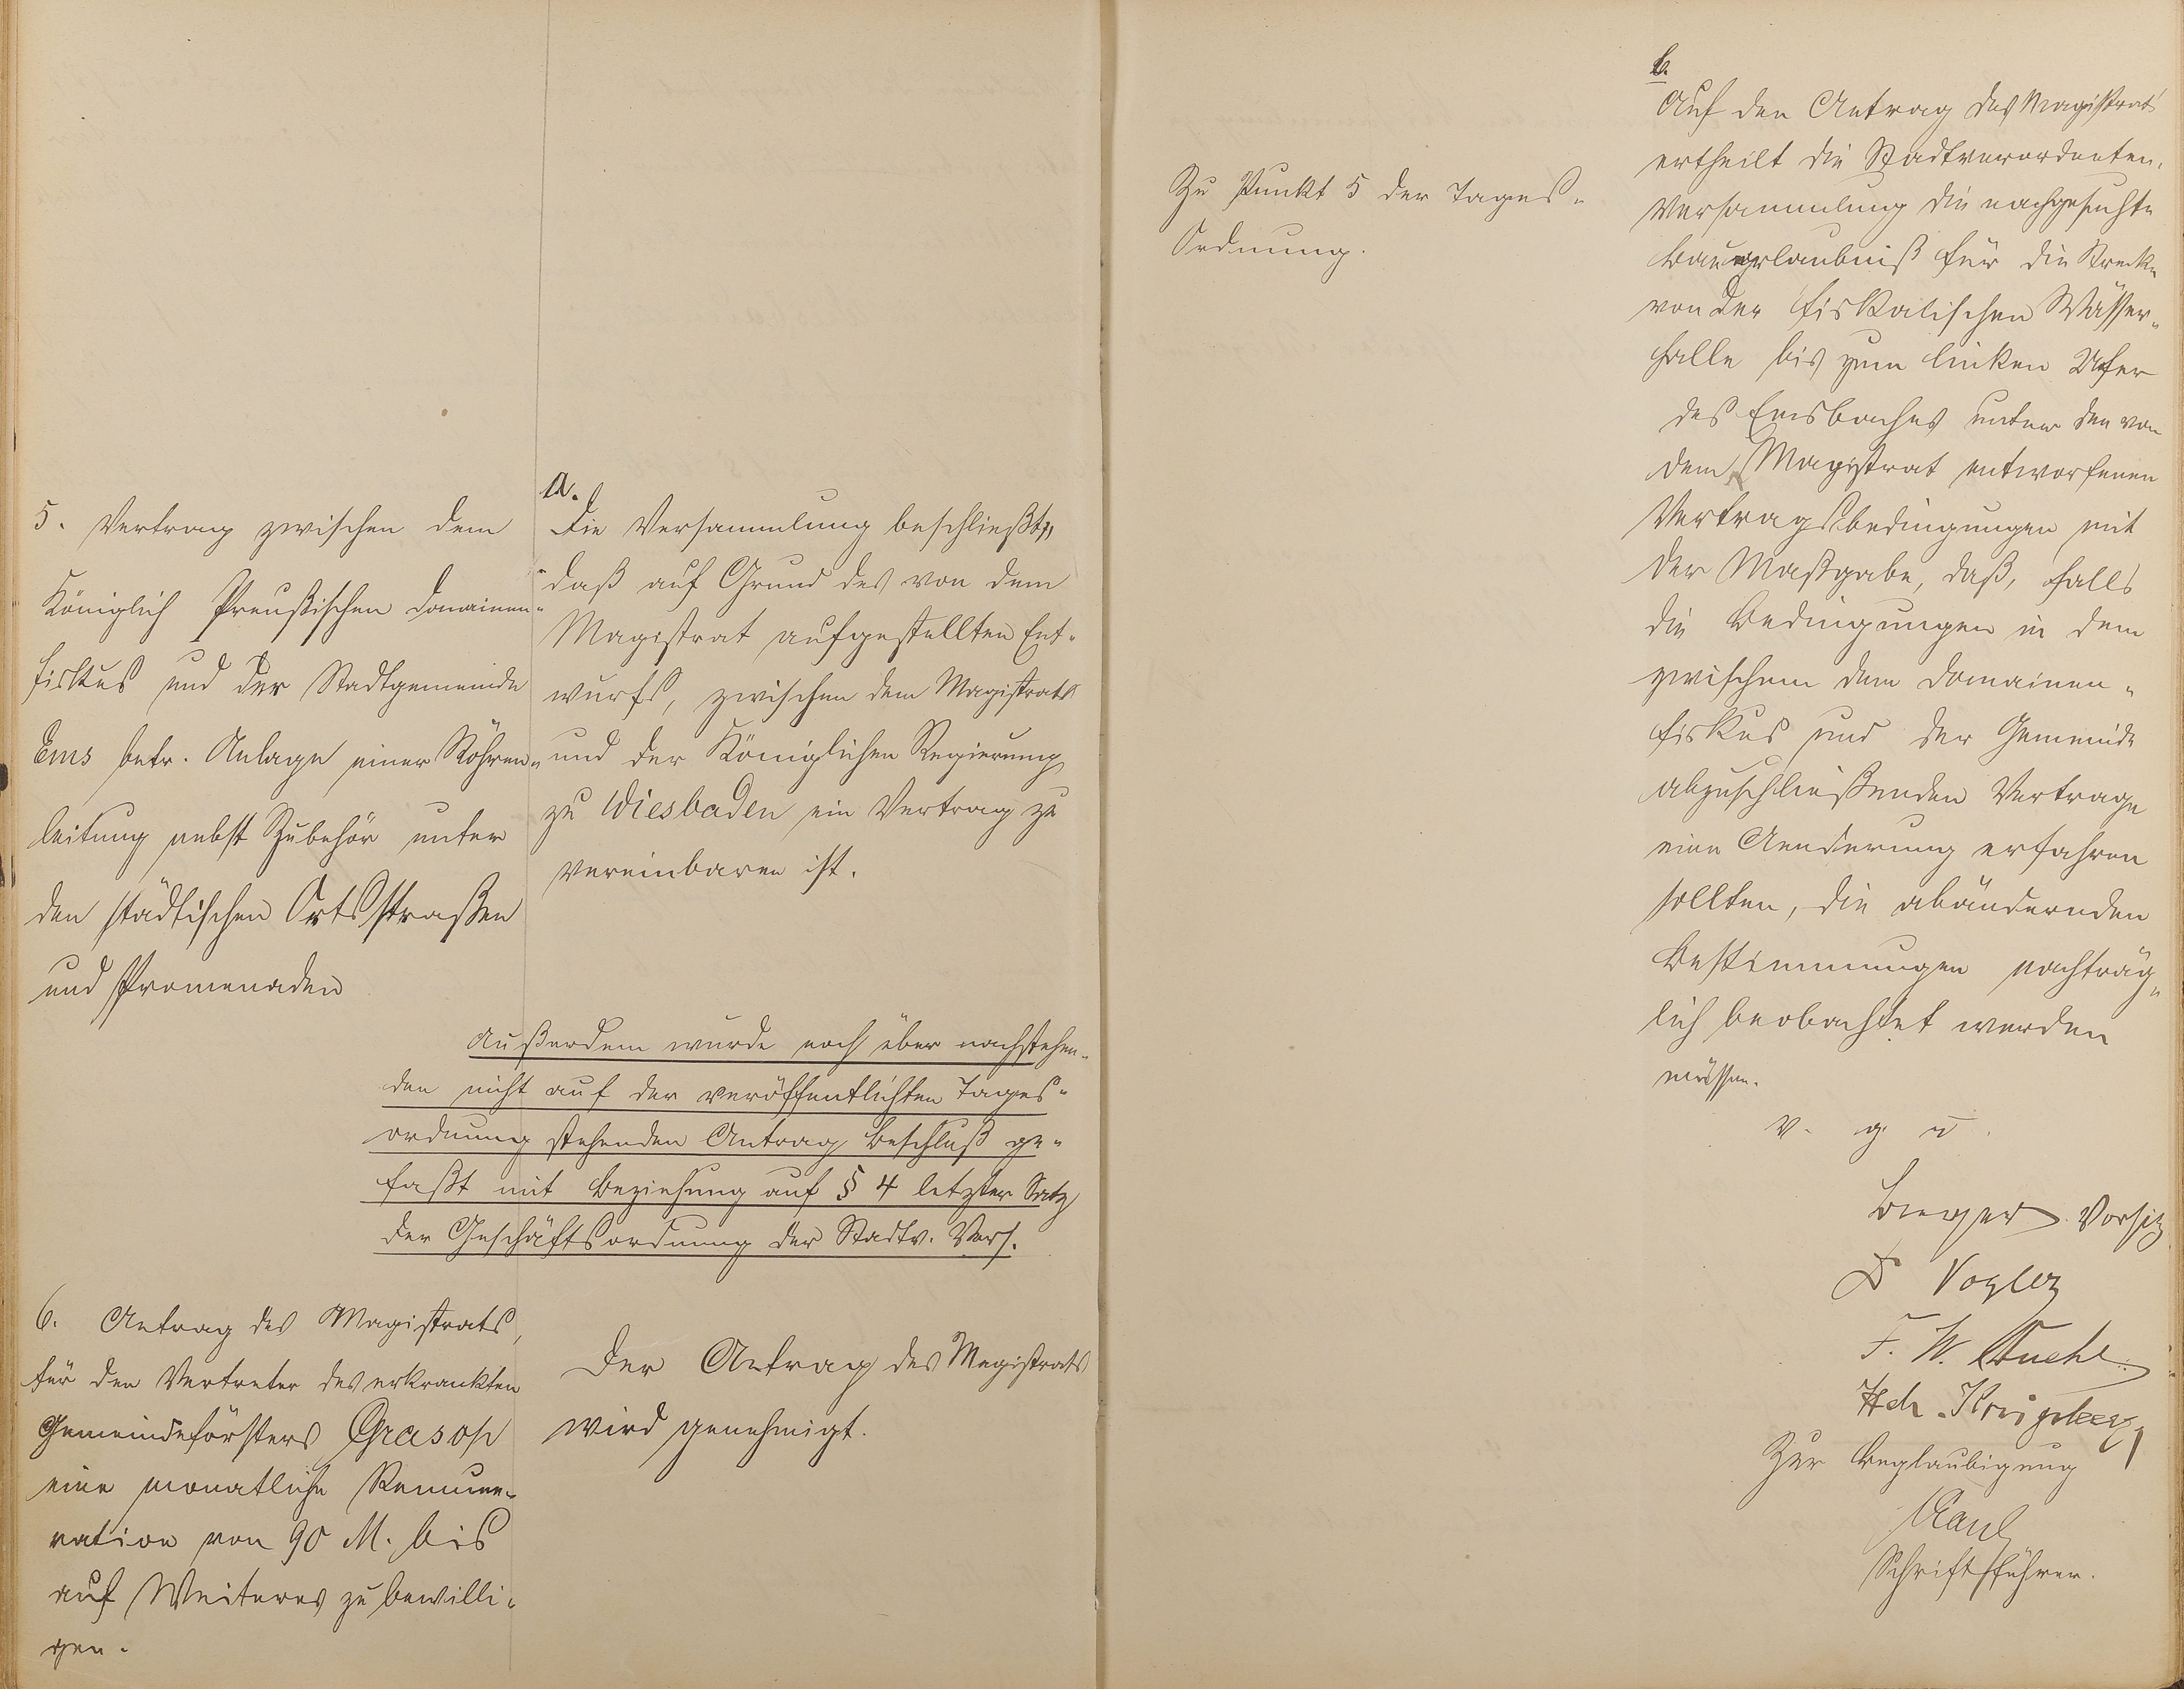 5. Vertrag zwischen dem
Königlich Preußischen Domainen-
fiskus und der Stadtgemeinde
Ems betr. Anlage einer Röhren-
leitung nebst Zubehör unter
den städtischen Ortsstraßen
und Promenaden
a.
Die Versammlung beschließt,
daß auf Grund des von dem
Magistrat aufgestellten Ent-
wurfs, zwischen dem Magistrat
und der Königlichen Regierung
zu Wiesbaden ein Vertrag zu
vereinbaren ist.
Außerdem wurde noch über nachstehen-
den nicht auf der veröffentlichten Tages-
ordnung stehenden Antrag Beschluß ge-
faßt mit Beziehung auf § 4 letzter Satz
der Geschäftsordnung der Stadtv. Vers.
6. Antrag des Magistrats,
für den Vertreter des erkrankten
Gemeindeförsters
eine monatliche Remune-
ration von 90 M. bis
auf Weiteres zu bewilli-
gen.
Der Antrag des Magistrats
wird genehmigt.
Zu Punkt 5 der Tages-
Ordnung.
b.
Auf den Antrag des Magistrats
ertheilt die Stadtverordneten-
Versammlung die nachgesuchte
Bauerlaubniß für die Strecke
von der fiskalischen Wässer-
halle bis zum linken Ufer
des Emsbaches unter den von
dem Magistrat entworfenen
Vertragsbedingungen mit
der Maßgabe, daß, falls
die Bedingungen in dem
zwischem dem Domainen-
fiskus und der Gemeinde
abzuschließenden Vertrage
eine Aenderung erfahren
sollten, die abändernden
Bestimmungen nachträg-
lich beobachtet werden
müssen.
v. g. u.
Vorsitz
D Vogler
F. W.
Hch.
Zur Beglaubigung
Schriftführer.